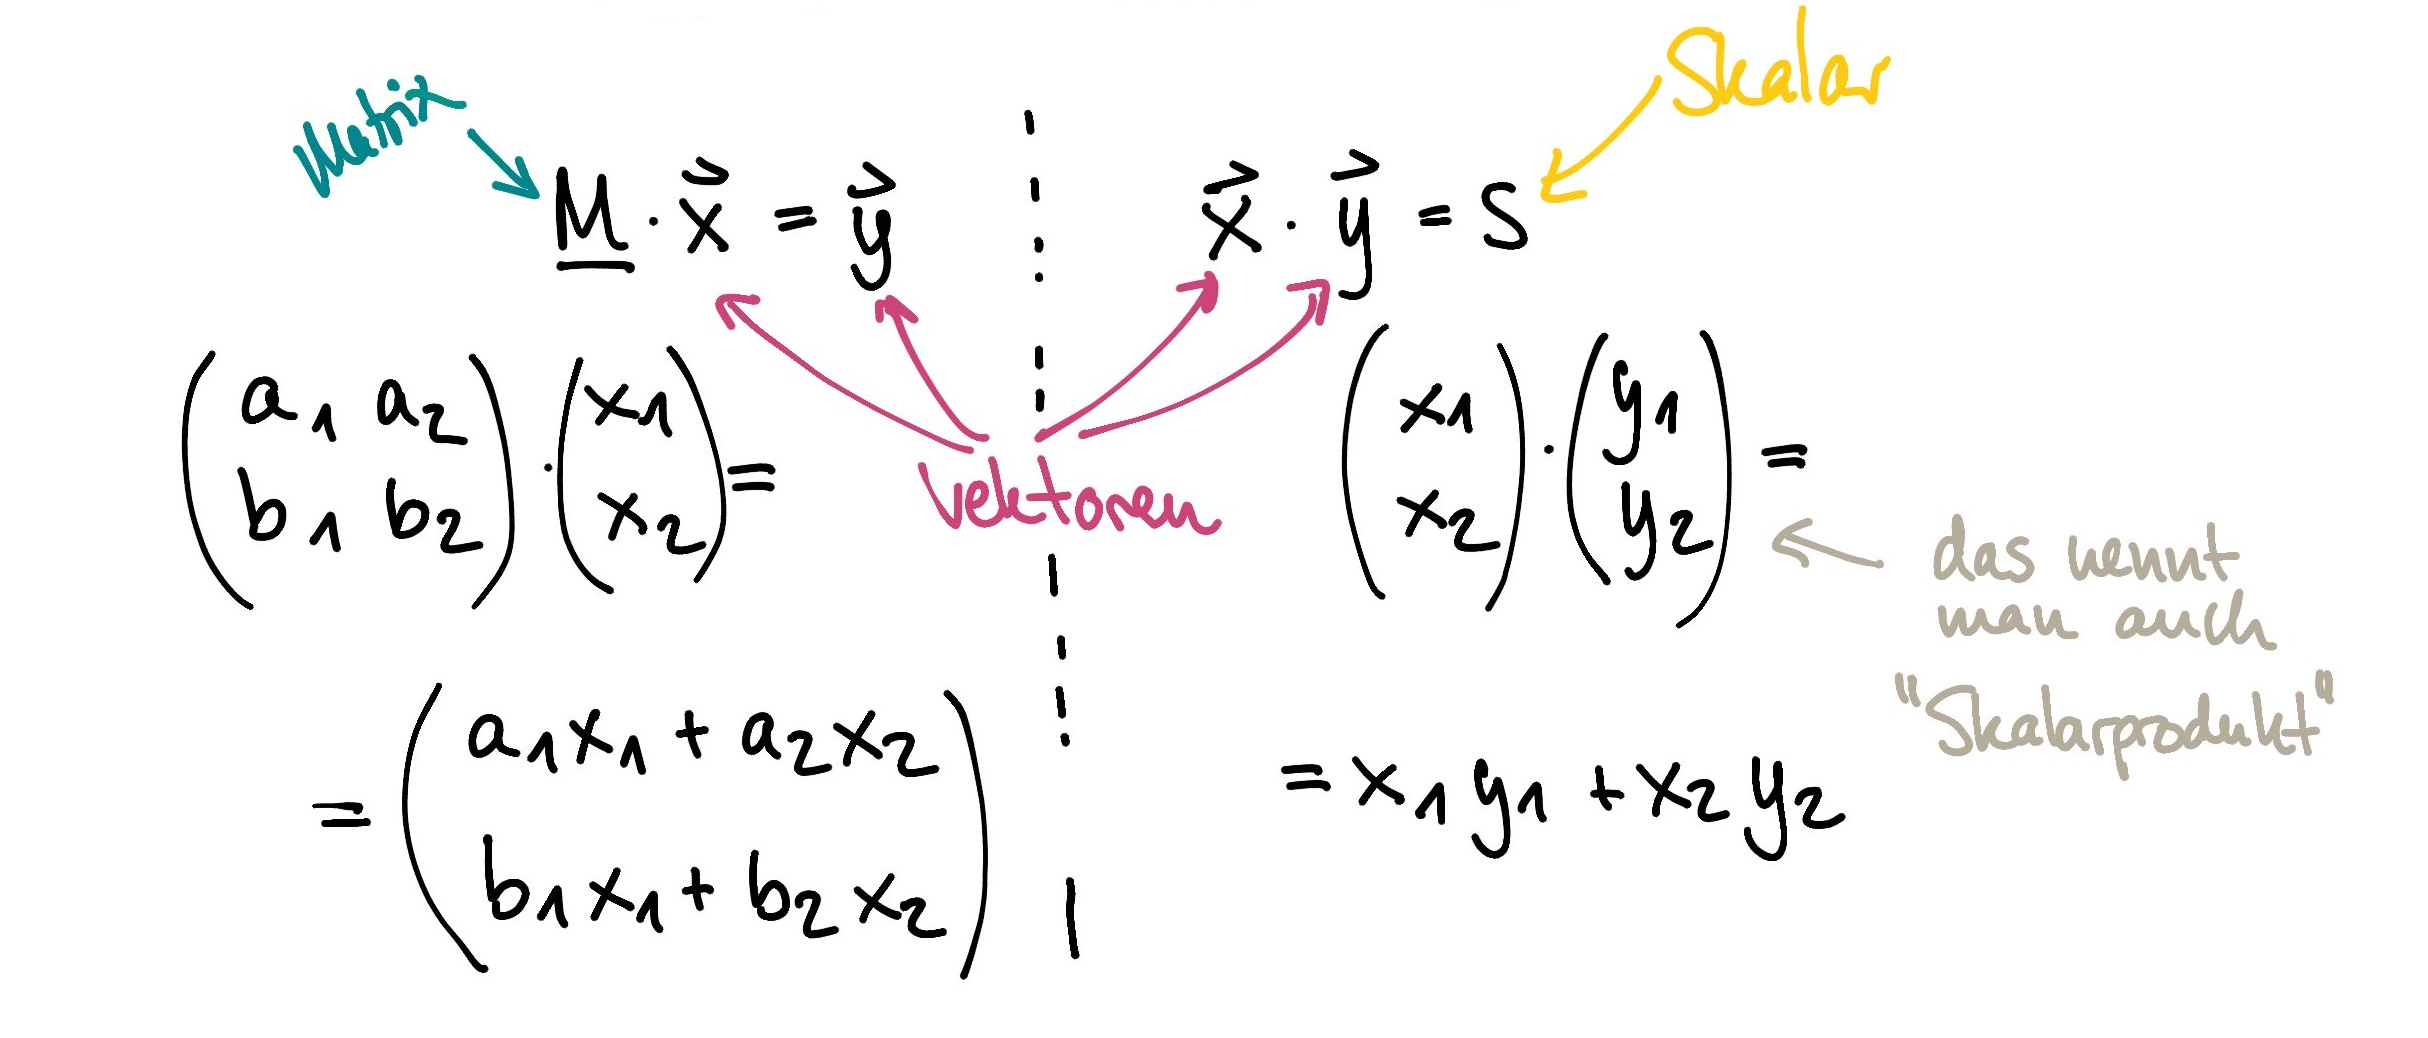 Matrix
M · x⃗ = y⃗
(a₁ a₂
b₁ b₂) · (x₁
x₂) =
= (a₁x₁ + a₂x₂
b₁x₁ + b₂x₂)
Vektoren
Skalar
x⃗ · y⃗ = S
(x₁
x₂) · (y₁
y₂) =
das nennt
man auch
"Skalarprodukt"
= x₁y₁ + x₂y₂